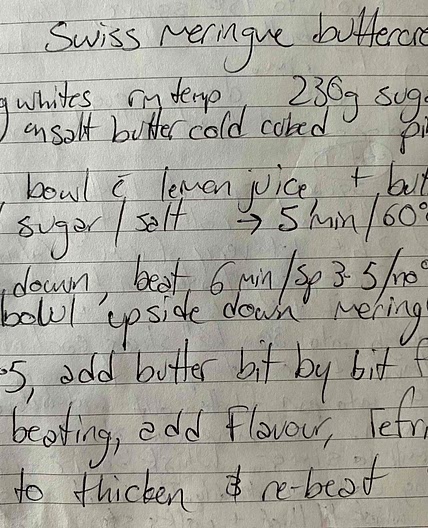 Swiss Meringue buttercre
g whites rm temp, 230g suga
) unsalt butter cold cubed pi
bowl c̄ lemon juice + but
/ sugar / salt → 5 min / 60°
, down, beat 6 min / Sp 3-5 / no
bowl upside down mering
.5, add butter bit by bit f
beating, add flavour, refri
to thicken & re-beat